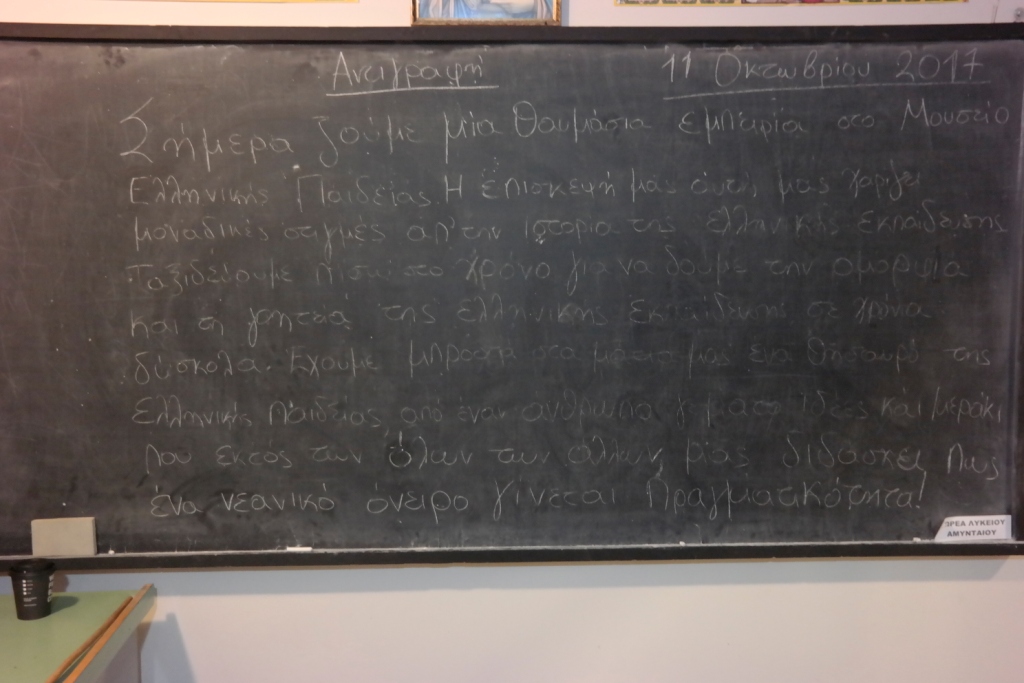 Αντιγραφή 11 Οκτωβρίου 2017
Σήμερα ζούμε μία θαυμάσια εμπειρία στο Μουσείο
Ελληνικής Παιδείας. Η επίσκεψή μας αυτή μας χαρίζει
μοναδικές στιγμές απ' την ιστορία της ελληνικής εκπαίδευσης
Ταξιδεύουμε πίσω στο χρόνο για να δούμε την ομορφιά
και τη γοητεία της ελληνικής εκπαίδευσης σε χρόνια
δύσκολα. Έχουμε μπροστά στα μάτια μας ένα θησαυρό της
Ελληνικής Παιδείας από έναν άνθρωπο γεμάτο ιδέες και μεράκι
που εκτός των όλων των άλλων, μας διδάσκει πως
ένα νεανικό όνειρο γίνεται πραγματικότητα!
ΕΔΡΕΑ ΛΥΚΕΙΟΥ
ΑΜΥΝΤΑΙΟΥ